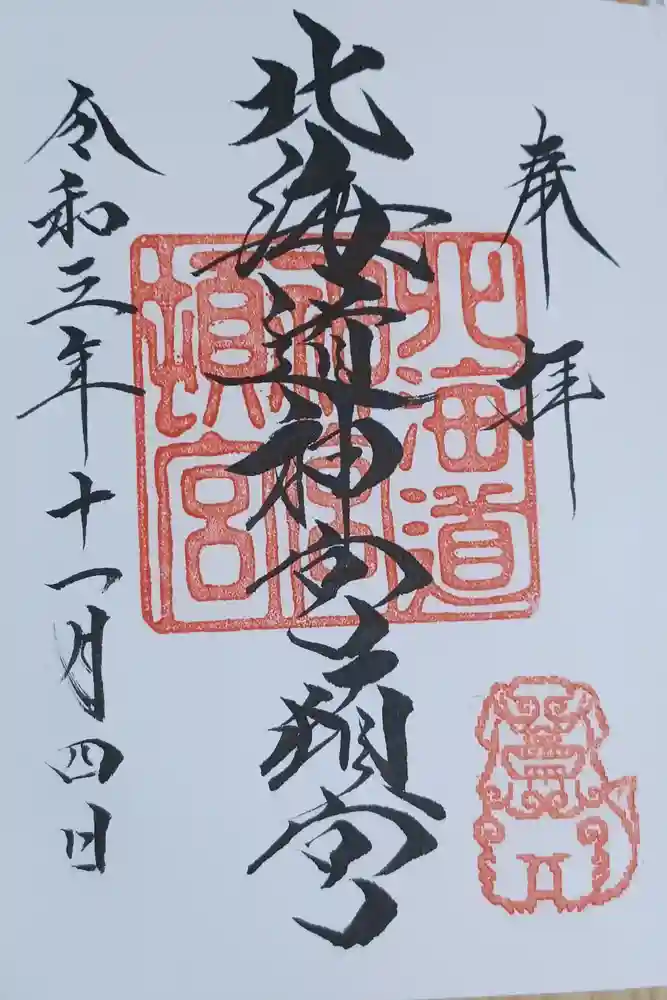 奉拝
北海道神宮頓宮
北海道
神宮
頓宮
令和三年十一月四日